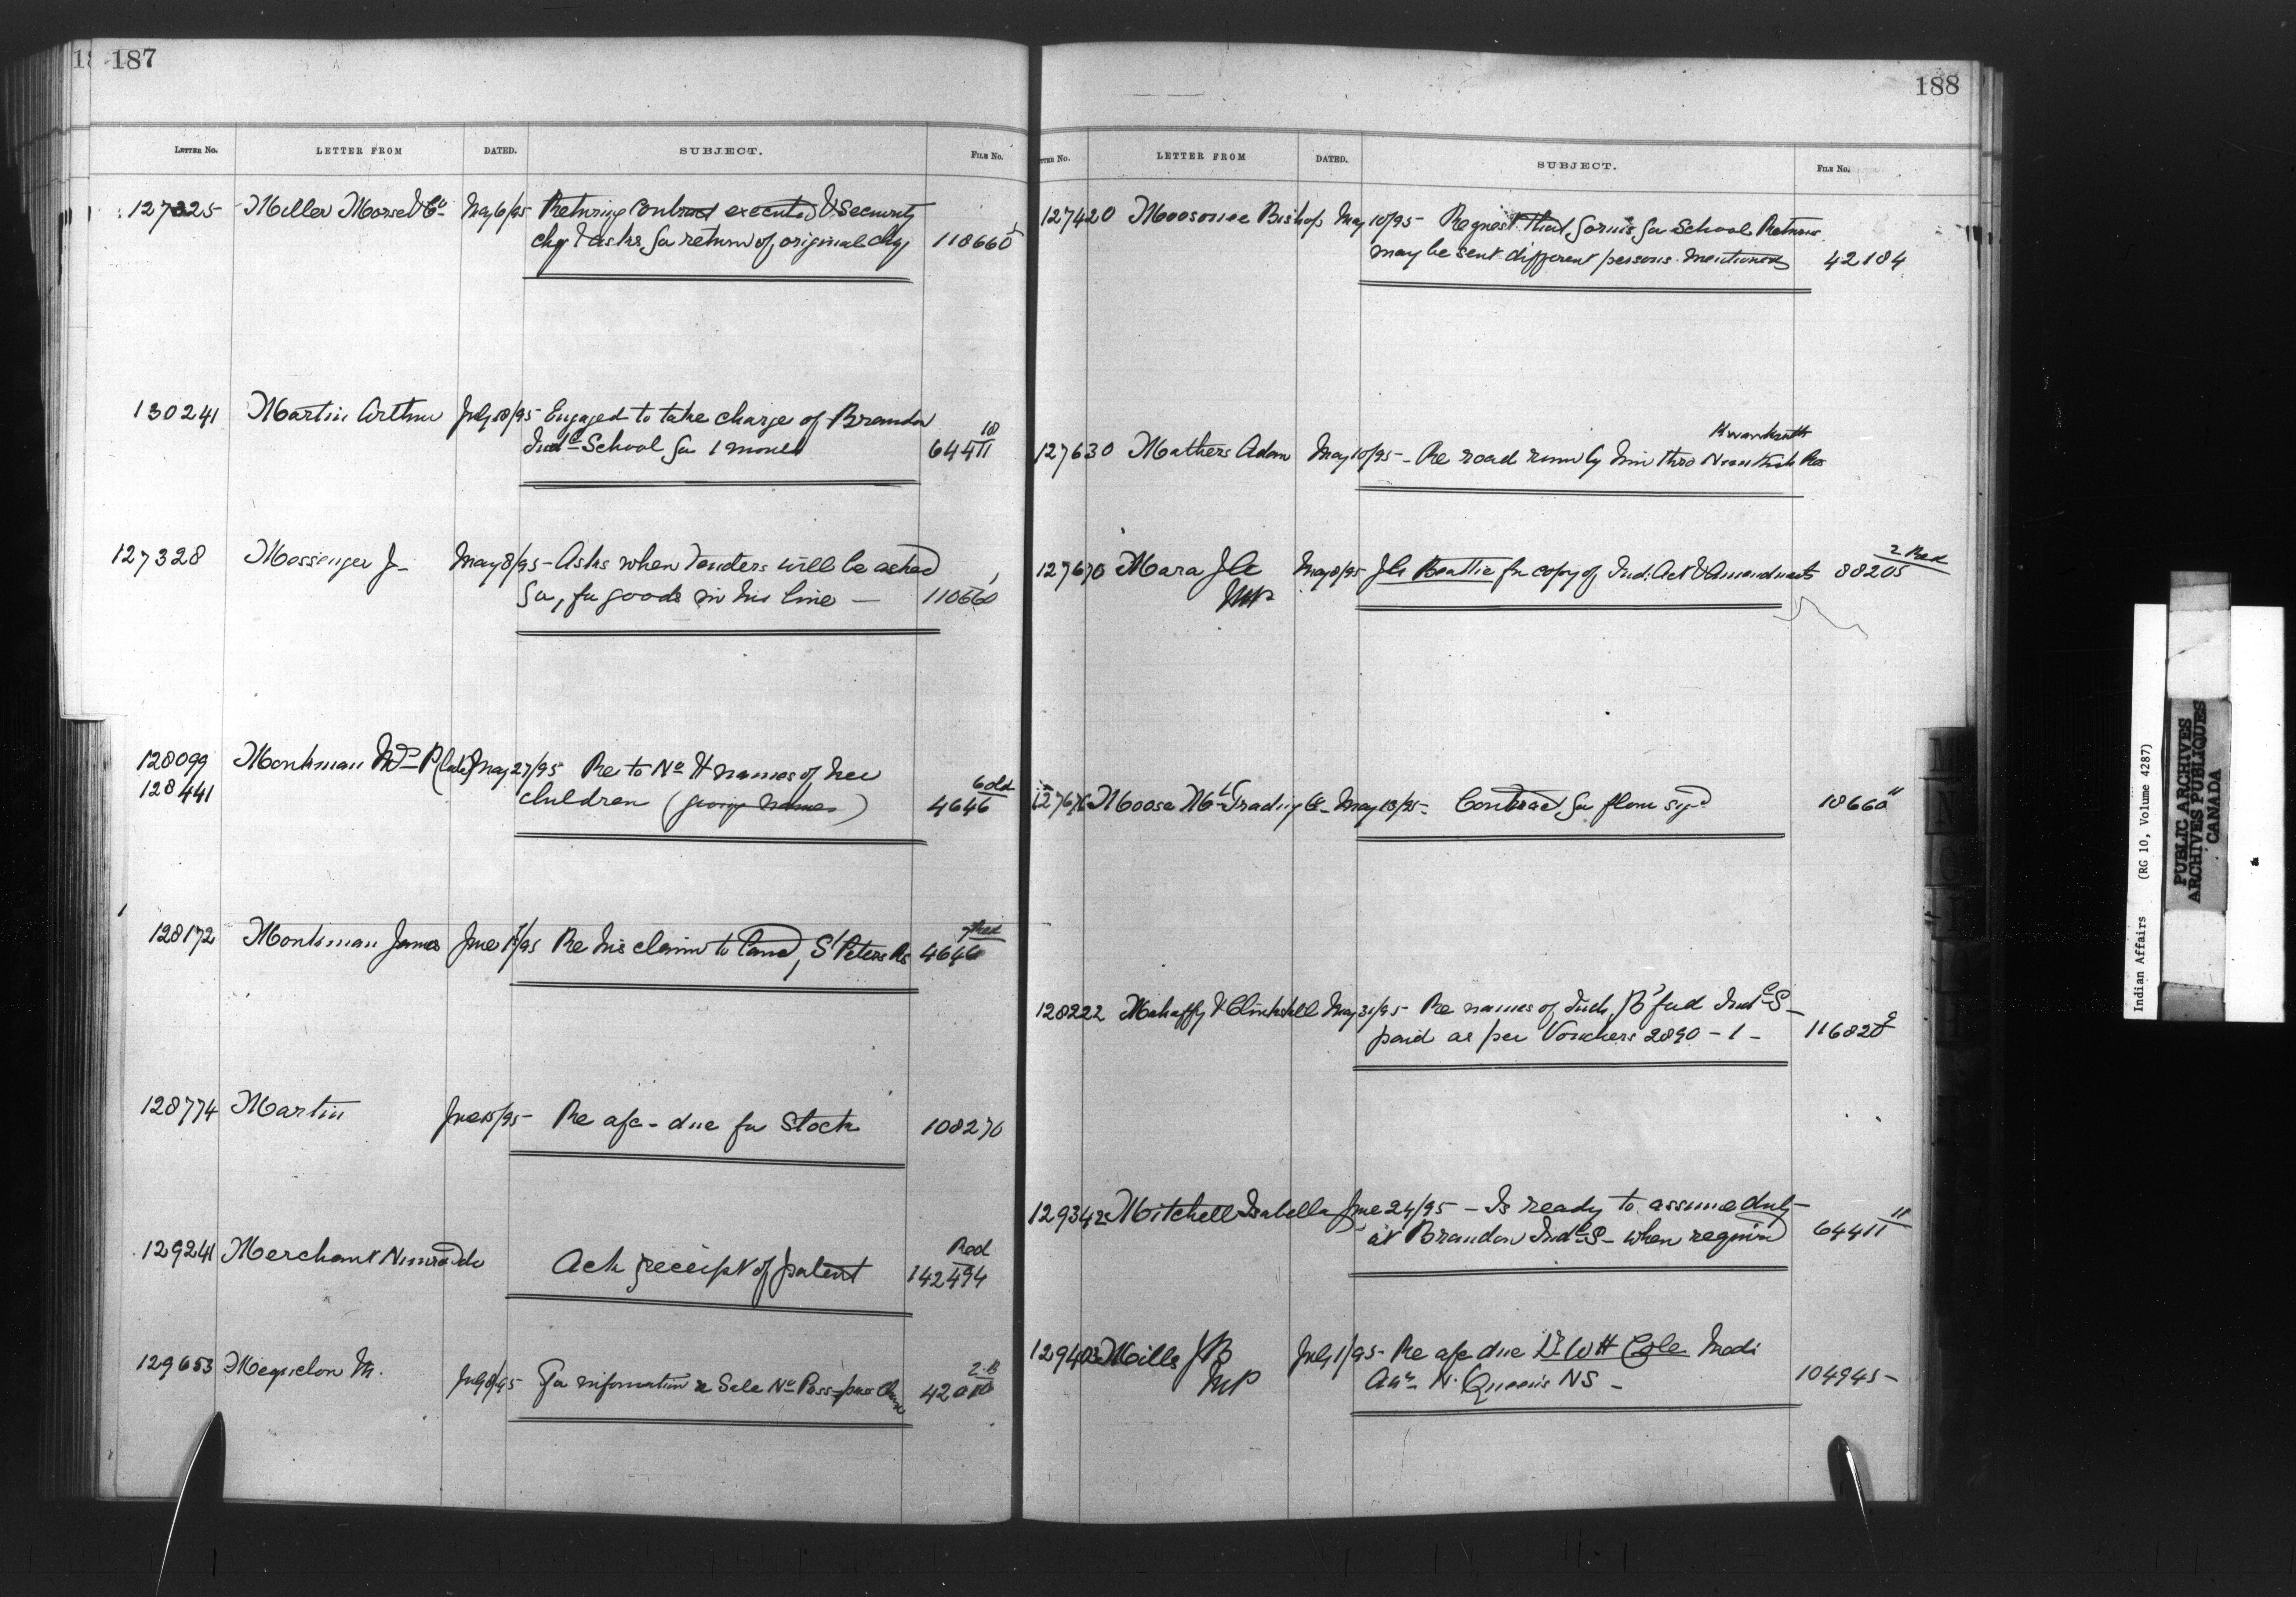 187
LETTER No. LETTER FROM DATED. SUBJECT. FILE No.
127325 Miller Morse & Co May 6/95 Returning Contract executed & Security
chq & asks for return of original chq 118660
130241 Martin Arthur July 18/95 Engaged to take charge of Brandon
Indl School for 1 month 64411 10
127328 Messenger J- May 8/95 - Asks when Tenders will be asked
for, for goods in his line — 110660
128099 Monkman P May 27/95 Re to No names of her
128441 children ( names ) 4646 6 old
128172 Monkman James June 1/95 Re his claim to land, St Peters Rs 4646 Red
128774 Martin June 15/95 - Re a/c - due for Stock 108270
129241 Merchant Ack receipt of patent 142494 Red
129653 M. July 8/95 For information re Sale No
188
LETTER No. LETTER FROM DATED. SUBJECT. FILE No.
127420 Moosonee Bishop May 10/95 - Request that forms for School Returns
may be sent different persons mentioned 42184
127630 Mathers Adam May 10/95 - Re road run by him thro Res
127670 Mara J A May 8/95 - Beattie for copy of Ind: Act & Amendments 88205 2 Red
MP
127676 Moose Mt Trading Co - May 13/95 - Contract for flour sigd 18660 11
128222 Mahaffy & Clinkskill May 31/95 - Re names of Inds B'ford Indl S -
paid as per Vouchers 2890 - 1 - 116820 2
129342 Mitchell Isabella June 24/95 - Is ready to assume duty
at Brandon Indl S - when required 64411 11
129403 Mills J B July 1/95 - Re a/c due Dr W H Cole Medl
MP Att N. Queens NS - 104945 -
Indian Affairs (RG 10, Volume 4287)
PUBLIC ARCHIVES
ARCHIVES PUBLIQUES
CANADA
M
N